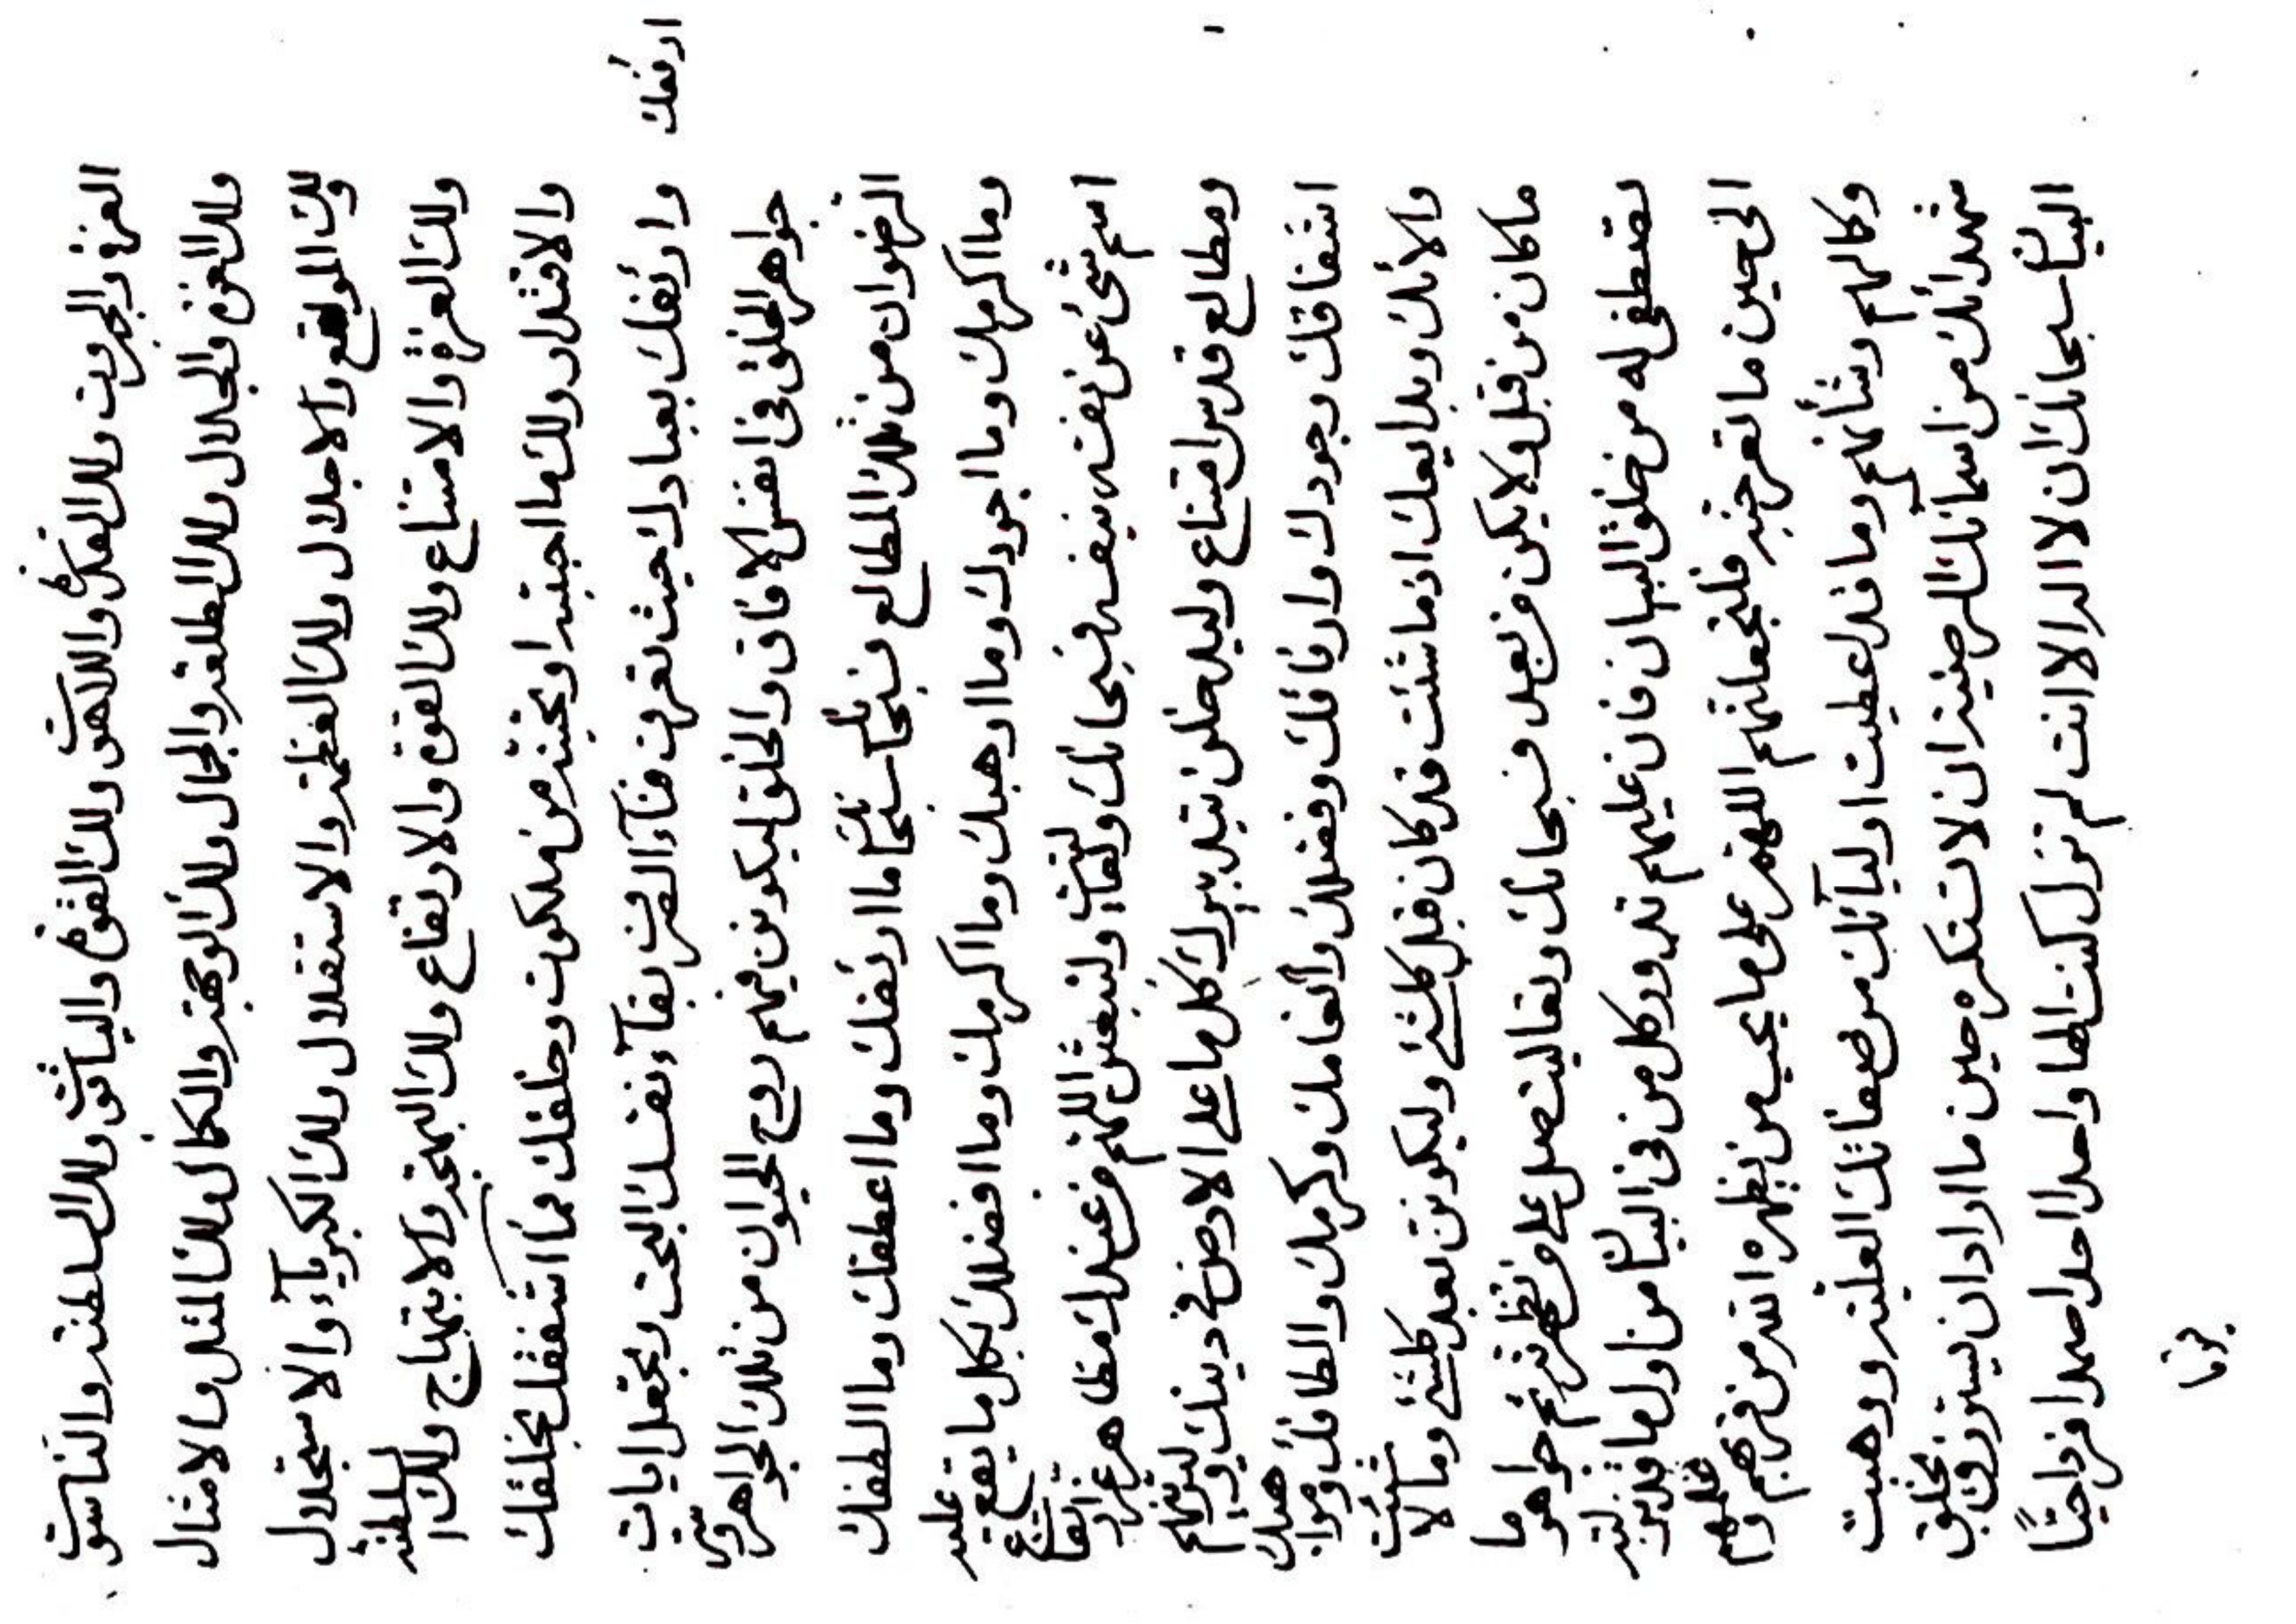 العزة والجبروت ولك القدرة واللاهوت ولك القوة والياقوت ولك السلطنة والناسوت
ولك العزة والجلال ولك الطلعة والجمال ولك الوجهة والكمال ولك المثل والامثال
ولك المواقع والاجلال ولك العظمة والاستقلال ولك الكبريآء والاستجلال
ولك العزة والامتناع ولك القوة والارتفاع ولك البهجة والابتهاج ولك السلطنة
والاقتدار ولك ما احببته او تحبنه من ملكوت وخلقك فما اشفقك بخلقك
وارئفك بعبادك حيث تعرف فنآء القرب بقآء نفسك البحت وتجعل ايات
ارئفك
جواهر الخلق في انفس الافاق والخلق ليكونن فيهم روح الحيوان من تلك الجواهر وسر
الرضوان من تلك المطالع فسبحانك سبحانك ما ارئفك وما اعطفك وما الطفك
وما اكرمك وما اجودك وما اوهبك وما اكرمك وما افضلك بكل ما يقع عليه
اسم شئ عن نفسه بنفسه فسبحانك وتعاليت ولتبعثن اللهم من عندك مظاهر عز ارتفاع
ومطالع قدس امتناع وليدخلن بتدبيرك كل ما على الارض في دينك
اشفاقك وجودك وارفاقك وفضلك وانعامك وكرمك والطافك ومواهبك
والائك وبدايعك اذ ما شئت قد كان قبل كلشئ وليكونن بعد كلشئ وما لا شئت
ما كان من قبل ولا يكن من بعد فسبحانك وتعاليت صل على من جواهر ما
له من خلق البيان فان عليهم وكل من في البيان من اول ما
الى حين ما تغرسنه فلتجعلنهم اللهم على ما يحب من نظهره اذ من فزعهم
وكالهم وشأنهم وما قد اعطيت اوليآئك من صفاتك العلية ووهبت
شهدائك من اسمائك المرضية ان لا تستكره حين ما اراد ان يخلق
البيان سبحانك ان لا اله الا انت لم تزل كنت الها واحدا احدا صمدا فردا حيا